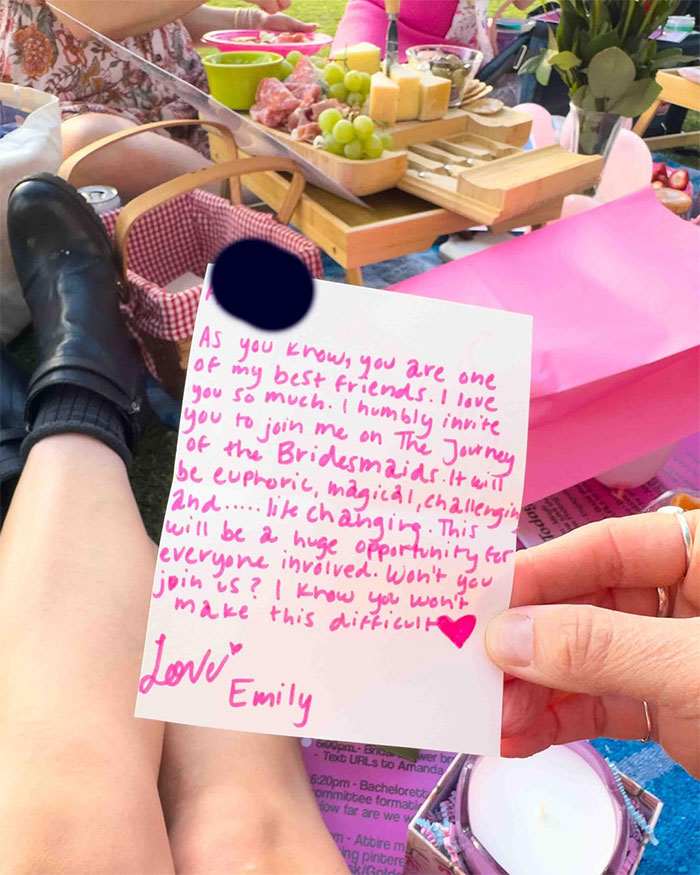 As you know, you are one
of my best friends. I love
you so much. I humbly invite
you to join me on The Journey
of the Bridesmaids. It will
be euphoric, magical, challenging
and..... life changing. This
will be a huge opportunity for
everyone involved. Won't you
join us? I know you won't
make this difficult
Love
Emily
- Text URLs to Amanda
6:20pm - Bachelorett
ommittee formati
ow far are we w
m - Attire m
ng pintere